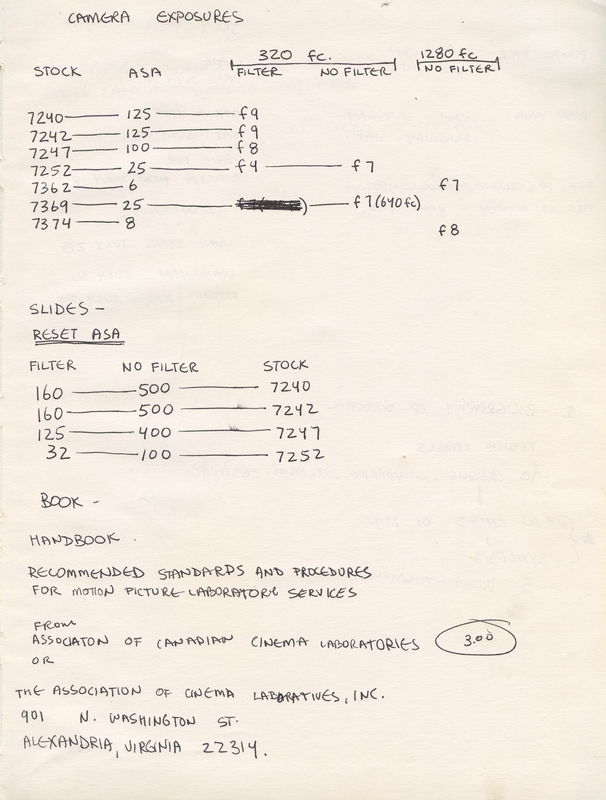 CAMERA EXPOSURES
320 fc. 1280 fc
STOCK ASA FILTER NO FILTER NO FILTER
7240 125 f9
7242 125 f9
7247 100 f8
7252 25 f4 f7
7362 6 f7
7369 25 f7 (640 fc)
7374 8 f8
SLIDES -
RESET ASA
FILTER NO FILTER STOCK
160 500 7240
160 500 7242
125 400 7247
32 100 7252
BOOK -
HANDBOOK.
RECOMMENDED STANDARDS AND PROCEDURES
FOR MOTION PICTURE LABORATORY SERVICES
FROM
ASSOCIATON OF CANADIAN CINEMA LABORATORIES 3.00
OR
THE ASSOCIATION OF CINEMA LABORATIVES, INC.
901 N. WASHINGTON ST.
ALEXANDRIA, VIRGINIA 22314.